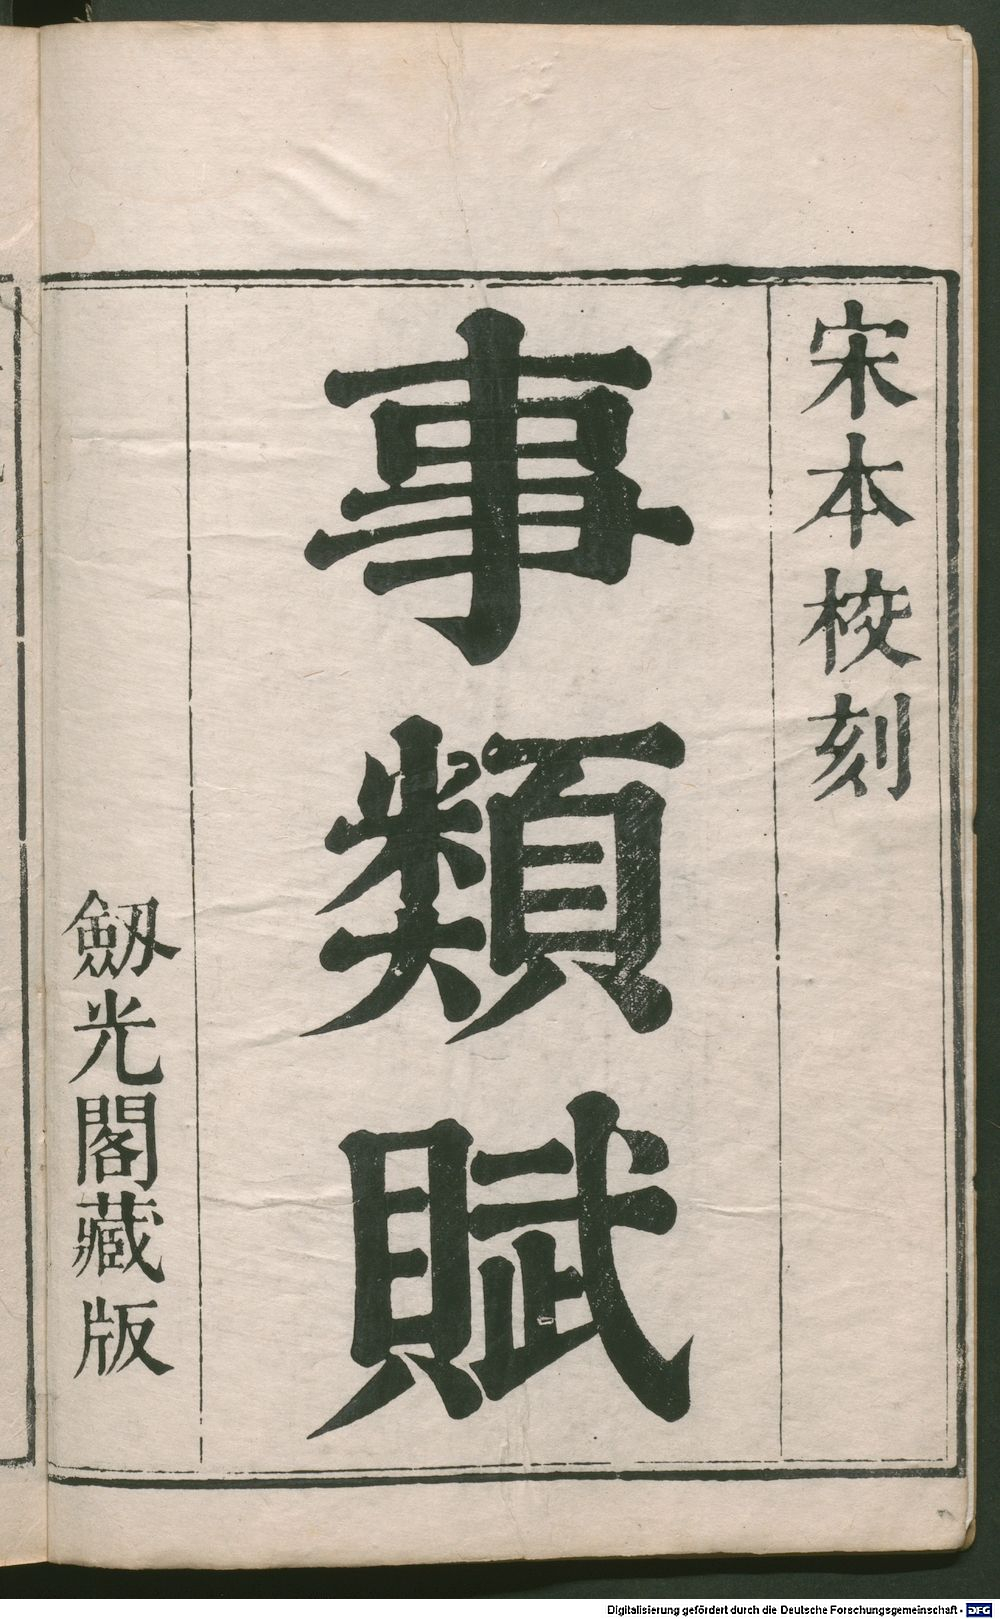 宋本校刻
事類賦
劔光閣藏版
Digitalisierung gefördert durch die Deutsche Forschungsgemeinschaft - DFG